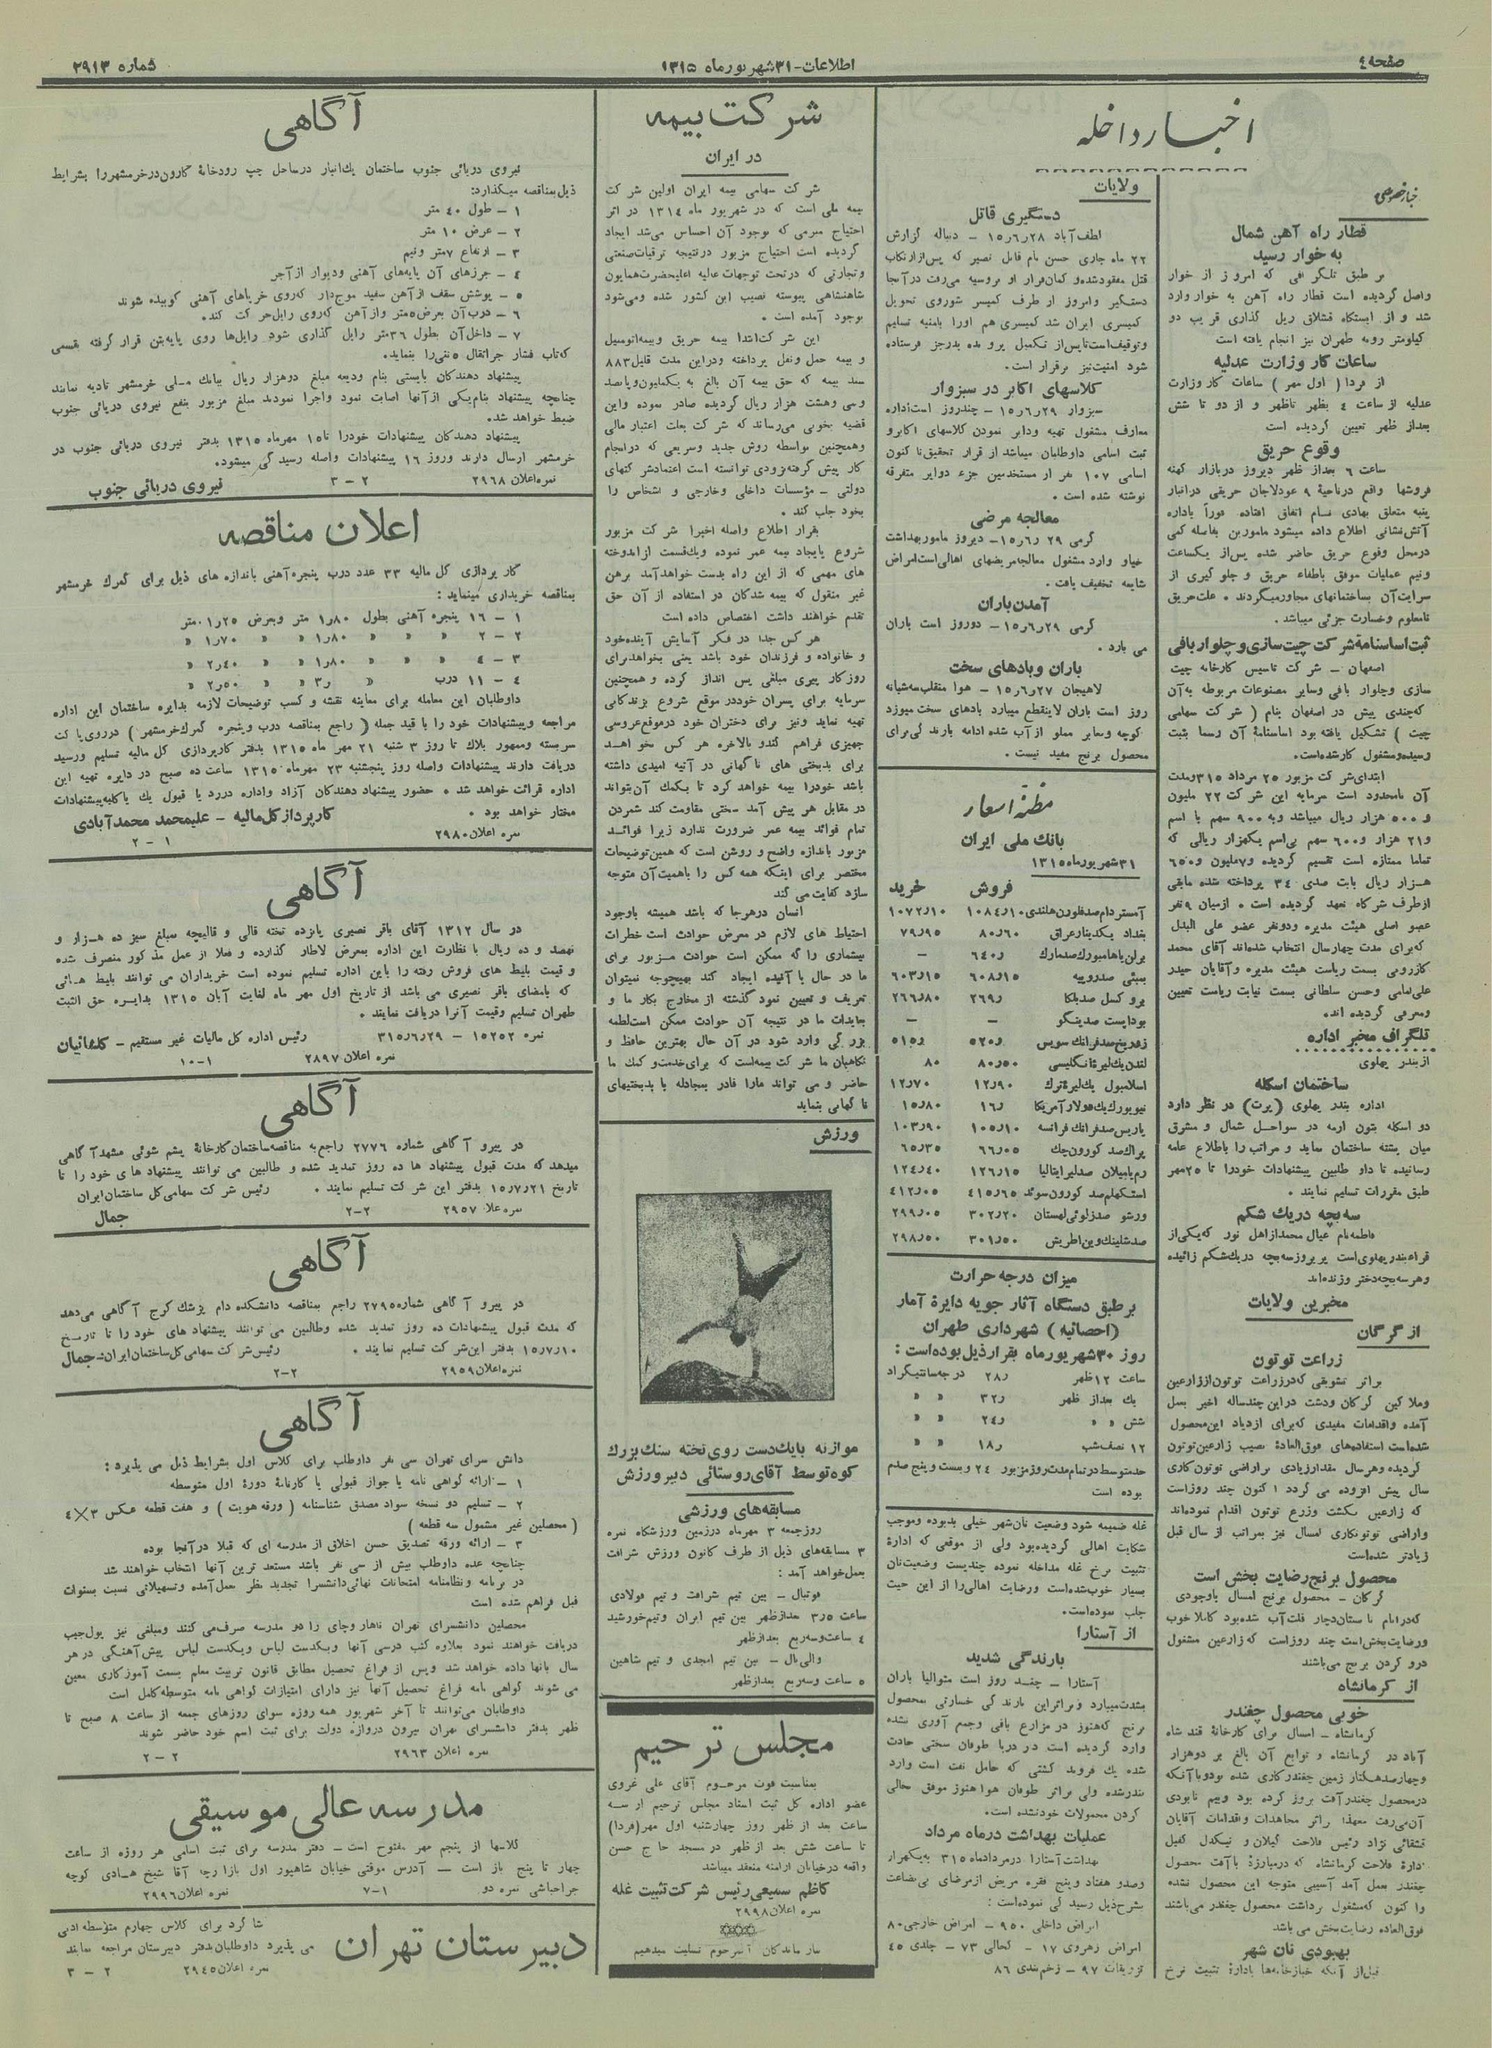 صفحه ٤
اطلاعات - ۳۱ شهریور ماه ۱۳۱۵
شماره ۲۹۱۳
اخبار داخله
قطار راه آهن شمال
به خوار رسید
بر طبق تلگرافی که امروز از خوار
واصل گردیده است قطار راه آهن به خوار وارد
شد و از ایستگاه قشلاق ریل گذاری قریب دو
کیلومتر روبه طهران نیز انجام یافته است
ساعات کار وزارت عدلیه
از فردا ( اول مهر ) ساعات کار وزارت
عدلیه از ساعت ٤ بظهر تاظهر و از دو تا شش
بعداز ظهر تعیین گردیده است
وقوع حریق
ساعت ٦ بعداز ظهر دیروز دربازار کهنه
فروشها واقع درناحیهٔ ۹ عودلاجان حریقی درانبار
پنبه متعلق بهادی نام اتفاق افتاده فوراً باداره
آتش نشانی اطلاع داده میشود مامورین بفاصله کمی
درمحل وقوع حریق حاضر شده پس از یکساعت
ونیم عملیات موفق باطفاء حریق و جلوگیری از
سرایت آن بساختمانهای مجاورمیگردند ٠ علت حریق
نامعلوم وخسارت جزئی میباشد ٠
ثبت اساسنامهٔ شرکت چیت سازی و چلوار بافی
اصفهان – شرکت تاسیس کارخانه چیت
سازی وچلوار بافی وسایر مصنوعات مربوطه به آن
که چندی پیش در اصفهان بنام ( شرکت سهامی
چیت ) تشکیل یافته بود اساسنامهٔ آن رسما بثبت
رسیده ومشغول کارشده است.
ابتدای شرکت مزبور ۲۵ مرداد ۳۱۵ ومدت
آن نامحدود است سرمایه این شرکت ۲۲ ملیون
و ۵۰۰ هزار ریال میباشد و به ۹۰۰ سهم با اسم
و ۲۱ هزار و ٦۰۰ سهم بی اسم یکهزار ریالی که
تماما ممتازه است تقسیم گردیده و ۷ ملیون و ٦٥۰
هزار ریال بابت صدی ۳٤ پرداخته شده مابقی
ازطرف شرکاء تعهد گردیده است ٠ ازمیان ۹ نفر
عضو اصلی هیئت مدیره ودونفر عضو علی البدل
که برای مدت چهارسال انتخاب شده اند آقای محمد
کازرونی بسمت ریاست هیئت مدیره وآقایان حیدر
علی امامی وحسن سلطانی بسمت نیابت ریاست تعیین
ومعرفی گردیده اند.
تلگراف مخبر اداره
از بندر پهلوی
ساختمان اسکله
اداره بندر پهلوی (پرت) در نظر دارد
دو اسکله بتون آرمه در سواحل شمال و مشرق
میان پشته ساختمان نماید و مراتب را باطلاع عامه
رسانیده تا داوطلبین پیشنهادات خودرا تا ۲۵ مهر
طبق مقررات تسلیم نمایند ٠
سه بچه در یک شکم
فاطمه نام عیال محمد ازاهل نور که یکی از
قراء بندر پهلوی است پریروز سه بچه دریک شکم زائیده
وهر سه بچه دختر وزنده اند
مخبرین ولایات
از گرگان
زراعت توتون
براثر تشویقی که درزراعت توتون اززارعین
وملاکین گرگان ودشت دراین چندساله اخیر بعمل
آمده واقدامات مفیدی که برای ازدیاد این محصول
شده است استفاده های فوق العادهٔ نصیب زارعین توتون
گردیده وهرسال مقدارزیادی براراضی توتون کاری
سال پیش افزوده می گردد اکنون چند روز است
که زارعین بکشت وزرع توتون اقدام نموده اند
واراضی توتونکاری امسال نیز بمراتب از سال قبل
زیادتر شده است
محصول برنج رضایت بخش است
گرگان – محصول برنج امسال باوجودی
که در ایام تابستان دچار قلت آب شده بود کاملا خوب
ورضایت بخش است چند روز است که زارعین مشغول
درو کردن برنج می باشند
از کرمانشاه
خوبی محصول چغندر
کرمانشاه – امسال برای کارخانهٔ قند شاه
آباد در کرمانشاه و توابع آن بالغ بر دوهزار
وچهارصدهکتار زمین چغندرکاری شده بود وباآنکه
درمحصول چغندرآفت بروز کرده بود وبیم نابودی
آن می رفت معهذا براثر مجاهدات واقدامات آقایان
قشقائی نژاد رئیس فلاحت گیلان و نیکدل کفیل
ادارهٔ فلاحت کرمانشاه که درمبارزهٔ باآفت محصول
چغندر بعمل آمد آسیبی متوجه این محصول نشده
واکنون که مشغول برداشت محصول چغندر می باشند
فوق العاده رضایت بخش می باشد
بهبودی نان شهر
قبل از آنکه خبازخانه ها بادارهٔ تثبیت نرخ
ولایات
دستگیری قاتل
لطف آباد ۱۵٫٦٫۲۸ – دنباله گزارش
۲۲ ماه جاری حسن نام قاتل نصیر که پس از ارتکاب
قتل مفقودشده وگمان فرار او بروسیه می رفت درآنجا
دستگیر وامروز از طرف کمیسر شوروی تحویل
کمیسری ایران شد کمیسری هم اورا بامنیه تسلیم
وتوقیف است تاپس از تکمیل پرونده بدرجز فرستاده
شود امنیت نیز برقرار است.
کلاسهای اکابر در سبزوار
سبزوار ۱۵٫٦٫۲۹ – چندروز است اداره
معارف مشغول تهیه ودایر نمودن کلاسهای اکابر و
ثبت اسامی داوطلبان میباشد از قرار تحقیق تاکنون
اسامی ۱۰۷ نفر از مستخدمین جزء دوایر متفرقه
نوشته شده است ٠
معالجه مرضی
گرمی ۱۵٫٦٫۲۹ – دیروز مامور بهداشت
خیاو وارد مشغول معالجه مریضهای اهالی است امراض
شایعه تخفیف یافت.
آمدن باران
گرمی ۱۵٫٦٫۲۹ – دوروز است باران
می بارد.
باران وبادهای سخت
لاهیجان ۱۵٫٦٫۲۷ – هوا منقلب سه شبانه
روز است باران لاینقطع میبارد بادهای سخت میوزد
کوچه ومعابر مملو از آب شده ادامه بارندگی برای
محصول برنج مفید نیست ٠
مظنهٔ اسعار
بانک ملی ایران
۳۱ شهریور ماه ۱۳۱۵
فروش خرید
آمستردام صد فلورن هلندی ۱۰۸٤٫۱۰ ۱۰۷۲٫۱۰
بغداد یکدینار عراق ۸۰٫٦۰ ۷۹٫۹۵
برلن یا هامبورک صد مارک ٦٤۰٫ –
بمبئی صد روپیه ٦۰۸٫۱۵ ٦۰۳٫۱۵
بروکسل صد بلکا ۲٦۹٫ ۲٦٦٫۸۰
بوداپست صد پنگو – –
زوریخ صد فرانک سویس ۵۲۰٫ ۵۱۵٫
لندن یک لیرهٔ انگلیسی ۸۰٫۵۰ ۸۰
اسلامبول یک لیرهٔ ترک ۱۲٫۹۰ ۱۲٫۷۰
نیویورک یک دولار آمریکا ۱٦٫ ۱۵٫۸۰
پاریس صد فرانک فرانسه ۱۰۵٫۱۰ ۱۰۳٫۹۰
پراک صد کورون چک ٦٦٫۰۵ ٦۵٫۳۵
رم یا میلان صد لیر ایتالیا ۱۲٦٫۱۵ ۱۲٤٫٤۰
استکهلم صد کورون سوئد ٤۱۵٫٦۵ ٤۱۲٫۰۵
ورشو صد زلوتی لهستان ۳۰۲٫۲۰ ۲۹۹٫۰۵
صد شلینک وین اطریش ۳۰۱٫۵۰ ۲۹۸٫۵۰
میزان درجه حرارت
برطبق دستگاه آثار جویه دایرهٔ آمار
(احصائیه) شهرداری طهران
روز ۳۰ شهریورماه بقرار ذیل بوده است :
ساعت ۱۲ ظهر ۲۸٫ درجه سانتیگراد
یک بعداز ظهر ۳۲٫ « «
شش « « ۲٤٫ « «
۱۲ نصف شب ۱۸٫ « «
حدمتوسط درتمام مدت روز مزبور ۲٤ وبیست وپنج صدم
بوده است
غله ضمیمه شود وضعیت نان شهر خیلی بدبوده وموجب
شکایت اهالی گردیده بود ولی از موقعی که ادارهٔ
تثبیت نرخ غله مداخله نموده چندیست وضعیت نان
بسیار خوب شده است ورضایت اهالی را از این حیث
جلب نموده است.
از آستارا
بارندگی شدید
آستارا – چند روز است متوالیا باران
بشدت میبارد وبراثراین بارندگی خسارتی بمحصول
برنج که هنوز در مزارع باقی وجمع آوری نشده
وارد گردیده است در دریا طوفان سختی حادث
شده یک فروند کشتی که حامل نفت است وارد
بندرشده ولی براثر طوفان هوا هنوز موفق بخالی
کردن محمولات خودنشده است.
عملیات بهداشت درماه مرداد
بهداشت آستارا درمردادماه ۳۱۵ به یکهزار
وصدو هفتاد وپنج فقره مریض ازمرضای بی بضاعت
بشرح ذیل رسیدگی نموده است :
امراض داخلی ۹۵۰ – امراض خارجی ۸۰
امراض زهروی ۱۷ – کحالی ۷۳ – جلدی ٤۵
تزریقات ۹۷ – زخم بندی ۸٦
شرکت بیمه
در ایران
شرکت سهامی بیمه ایران اولین شرکت
بیمه ملی است که در شهریور ماه ۱۳۱٤ در اثر
احتیاج مبرمی که بوجود آن احساس می شد ایجاد
گردیده است احتیاج مزبور درنتیجه ترقیات صنعتی
وتجارتی که درتحت توجهات عالیه اعلیحضرت همایون
شاهنشاهی پیوسته نصیب این کشور شده ومی شود
بوجود آمده است ٠
این شرکت ابتدا بیمه حریق وبیمه اتومبیل
و بیمه حمل ونقل پرداخته ودراین مدت قلیل ۸۸۳
سند بیمه که حق بیمه آن بالغ به یکملیون و پانصد
وسی وهشت هزار ریال گردیده صادر نموده واین
قضیه بخوبی می رساند که شرکت بعلت اعتبار مالی
وهمچنین بواسطه روش جدید وسریعی که درانجام
کار پیش گرفته بزودی توانسته است اعتمادشرکتهای
دولتی – مؤسسات داخلی وخارجی و اشخاص را
بخود جلب کند ٠
بقرار اطلاع واصله اخیرا شرکت مزبور
شروع بایجاد بیمه عمر نموده ویک قسمت ازاندوخته
های مهمی که از این راه بدست خواهدآمد برهن
غیر منقول که بیمه شدگان در استفاده از آن حق
تقدم خواهند داشت اختصاص داده است
هر کس جدا در فکر آسایش آینده خود
و خانواده و فرزندان خود باشد یعنی بخواهدبرای
روزکار پیری مبلغی پس انداز کرده و همچنین
سرمایه برای پسران خوددر موقع شروع بزندگانی
تهیه نماید ونیز برای دختران خود درموقع عروسی
جهیزی فراهم کند وبالاخره هر کس بخواهد
برای بدبختی های ناگهانی در آتیه امیدی داشته
باشد خودرا بیمه خواهد کرد تا بکمک آن بتواند
در مقابل هر پیش آمد سختی مقاومت کند شمردن
تمام فوائد بیمه عمر ضرورت ندارد زیرا فوائد
مزبور باندازه واضح و روشن است که همین توضیحات
مختصر برای اینکه همه کس را باهمیت آن متوجه
سازد کفایت می کند
انسان درهرجا که باشد همیشه باوجود
احتیاط های لازم در معرض حوادث است خطرات
بیشماری را که ممکن است حوادث مزبور برای
ما در حال یا آینده ایجاد کند بهیچوجه نمیتوان
تعریف و تعیین نمود گذشته از مخارج بکار ما و
بعایدات ما در نتیجه آن حوادث ممکن است لطمه
بزرگی وارد شود در آن حال بهترین حافظ و
نگاهبان ما شرکت بیمه است که برای خدمت و کمک ما
حاضر و می تواند مارا قادر بمجادله با بدبختیهای
ناگهانی بنماید
ورزش
موازنه بایک دست روی تخته سنک بزرک
کوه توسط آقای روستائی دبیر ورزش
مسابقه های ورزشی
روزجمعه ۳ مهرماه درزمین ورزشگاه نمره
۳ مسابقه های ذیل از طرف کانون ورزش شرافت
بعمل خواهد آمد :
فوتبال – بین تیم شرافت و تیم فولادی
ساعت ۳٫۵ بعدازظهر بین تیم ایران وتیم خورشید
٤ ساعت وسه ربع بعدازظهر
والی بال – بین تیم امجدی و تیم شاهین
۵ ساعت وسه ربع بعدازظهر
مجلس ترحیم
بمناسبت فوت مرحوم آقای علی غروی
عضو اداره کل ثبت اسناد مجلس ترحیم از سه
ساعت بعد از ظهر روز چهارشنبه اول مهر (فردا)
تا ساعت شش بعد از ظهر در مسجد حاج حسن
واقعه درخیابان ارامنه منعقد میباشد
کاظم سمیعی رئیس شرکت تثبیت غله
نمره اعلان ۲۹۹۸
بباز ماندگان آنمرحوم تسلیت میدهیم
آگاهی
نیروی دریائی جنوب ساختمان یک انبار درساحل چپ رودخانهٔ کارون درخرمشهر را بشرایط
ذیل بمناقصه میگذارد:
۱ – طول ٤۰ متر
۲ – عرض ۱۰ متر
۳ – ارتفاع ۷ متر ونیم
٤ – جرزهای آن پایه های آهنی ودیوار از آجر
۵ – پوشش سقف ازآهن سفید موج دار که روی خرپاهای آهنی کوبیده شوند
٦ – درب آن بعرض ۵ متر وازآهن که روی رایل حرکت کند.
۷ – داخل آن بطول ۳٦ متر رایل گذاری شود رایل ها روی پایه بتن قرار گرفته بقسمی
که تاب فشار جراثقال ۵ تنی را بنماید.
پیشنهاد دهندگان بایستی بنام ودیعه مبلغ دوهزار ریال ببانک ملی خرمشهر تادیه نمایند
چنانچه پیشنهاد بنام یکی از آنها اصابت نمود واجرا ننمودند مبلغ مزبور بنفع نیروی دریائی جنوب
ضبط خواهد شد.
پیشنهاد دهندگان پیشنهادات خودرا تا ۱۵ مهرماه ۱۳۱۵ بدفتر نیروی دریائی جنوب در
خرمشهر ارسال دارند وروز ۱٦ پیشنهادات واصله رسیدگی میشود.
نمره اعلان ۲۹٦۸ ۲ – ۳ نیروی دریائی جنوب
اعلان مناقصه
کار پردازی کل مالیه ۳۳ عدد درب پنجره آهنی باندازه های ذیل برای گمرک خرمشهر
بمناقصه خریداری مینماید :
۱ – ۱٦ پنجره آهنی بطول ۱٫۸۰ متر وبعرض ۱٫۲۵ متر
۲ – ۲ « « « ۱٫۸۰ « « ۱٫۷۰ «
۳ – ٤ « « « ۱٫۸۰ « « ۲٫٤۰ «
٤ – ۱۱ درب « ۳٫ « « ۲٫۵۰ «
داوطلبان این معامله برای معاینه نقشه و کسب توضیحات لازمه بدایره ساختمان این اداره
مراجعه وپیشنهادات خود را با قید جمله ( راجع بمناقصه درب وپنجره گمرک خرمشهر ) درروی پاکت
سربسته وممهور بلاک تا روز ۳ شنبه ۲۱ مهر ماه ۱۳۱۵ بدفتر کارپردازی کل مالیه تسلیم ورسید
دریافت دارند پیشنهادات واصله روز پنجشنبه ۲۳ مهرماه ۱۳۱۵ ساعت ده صبح در دایره تهیه این
اداره قرائت خواهد شد ٠ حضور پیشنهاد دهندگان آزاد واداره دررد یا قبول یک یا کلیه پیشنهادات
مختار خواهد بود ٠ کارپرداز کل مالیه – علیمحمد محمدآبادی
نمره اعلان ۲۹۸۰ ۱ – ۲
آگاهی
در سال ۱۳۱۲ آقای باقر نصیری پانزده تخته قالی و قالیچه مبلغ سیزده هزار و
نهصد و ده ریال با نظارت این اداره بمعرض لاطار گذارده و فعلا از عمل مذکور منصرف شده
و قیمت بلیط های فروش رفته را باین اداره تسلیم نموده است خریداران می توانند بلیط هائی
که بامضای باقر نصیری می باشد از تاریخ اول مهر ماه لغایت آبان ۱۳۱۵ بدایره حق الثبت
طهران تسلیم وقیمت آنرا دریافت نمایند ٠
نمره ۱۵۲۵۲ – ۳۱۵٫٦٫۲۹ رئیس اداره کل مالیات غیر مستقیم – کلفائیان
نمره اعلان ۲۸۹۷ ۱–۱۰
آگاهی
در پیرو آگاهی شماره ۲۷۷٦ راجع به مناقصه ساختمان کارخانهٔ پشم شوئی مشهد آگاهی
میدهد که مدت قبول پیشنهاد ها ده روز تمدید شده و طالبین می توانند پیشنهاد های خود را تا
تاریخ ۱۵٫۷٫۲۱ بدفتر این شرکت تسلیم نمایند ٠ رئیس شرکت سهامی کل ساختمان ایران
نمره اعلان ۲۹۵۷ ۲–۲ جمال
آگاهی
در پیرو آگاهی شماره ۲۷۹۵ راجع بمناقصه دانشکده دام پزشک کرج آگاهی می دهد
که مدت قبول پیشنهادات ده روز تمدید شده وطالبین می توانند پیشنهاد های خود را تا تاریخ
۱۵٫۷٫۱۰ بدفتر این شرکت تسلیم نمایند ٠ رئیس شرکت سهامی کل ساختمان ایران – جمال
نمره اعلان ۲۹۵۹ ۲–۲
آگاهی
دانش سرای تهران سی نفر داوطلب برای کلاس اول بشرایط ذیل می پذیرد :
۱ – ارائه گواهی نامه یا جواز قبولی یا کارنامهٔ دورهٔ اول متوسطه
۲ – تسلیم دو نسخه سواد مصدق شناسنامه ( ورقه هویت ) و هفت قطعه عکس ۳×٤
( محصلین غیر مشمول سه قطعه )
۳ – ارائه ورقه تصدیق حسن اخلاق از مدرسه ای که قبلا درآنجا بوده
چنانچه عده داوطلب بیش از سی نفر باشد مستعد ترین آنها انتخاب خواهند شد
در برنامه ونظامنامه امتحانات نهائی دانشسرا تجدید نظر بعمل آمده وتسهیلاتی نسبت بسنوات
قبل فراهم شده است
محصلین دانشسرای تهران ناهار وچای را در مدرسه صرف می کنند ومبلغی نیز پول جیب
دریافت خواهند نمود بعلاوه کتب درسی آنها ویکدست لباس ویکدست لباس پیش آهنگی در هر
سال بانها داده خواهد شد وپس از فراغ تحصیل مطابق قانون تربیت معلم بسمت آموزگاری معین
می شوند گواهی نامه فراغ تحصیل آنها نیز دارای امتیازات گواهی نامه متوسطه کامل است
داوطلبان می توانند تا آخر شهریور همه روزه سوای روزهای جمعه از ساعت ۸ صبح تا
ظهر بدفتر دانشسرای تهران بیرون دروازه دولت برای ثبت اسم خود حاضر شوند
نمره اعلان ۲۹٦۳ ۲ – ۲
مدرسه عالی موسیقی
کلاسها از پنجم مهر مفتوح است – دفتر مدرسه برای ثبت اسامی هر روزه از ساعت
چهار تا پنج باز است – آدرس موقتی خیابان شاهپور اول بازارچه آقا شیخ هادی کوچه
جراحباشی نمره دو ۱–۷ نمره اعلان ۲۹۹٦
دبیرستان تهران
شاگرد برای کلاس چهارم متوسطه ادبی
می پذیرد داوطلبان بدفتر دبیرستان مراجعه نمایند
نمره اعلان ۲۹٤۵ ۲ – ۳